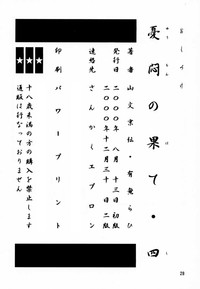 憂悶の果て・四
著者 山文京伝・有無らひ
発行日 二〇〇〇年 八月 十三日 初版
二〇〇〇年十二月三十日 二版
連絡先 さんかくエプロン
印刷 パワープリント
★★★
十八歳未満の方の購入を禁止します
通販は行なっておりません